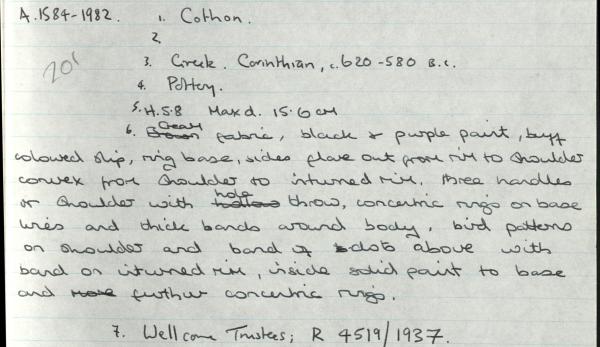 A.1584-1982. 1. Cothon.
201
2.
3. Greek. Corinthian, c.620-580 B.C.
4. Pottery.
5. H.5.8 Max d. 15.6 cm
6. Cream fabric, black & purple paint, buff
coloured slip, ring base, sides flare out from rim to shoulder
convex from shoulder to inturned rim, three handles
on shoulder with hole through, concentric rings on base
lines and thick bands around body, bird patterns
on shoulder and band of dots above with
band on inturned rim, inside solid paint to base
and further concentric rings.
7. Wellcome Trustees; R 4519/1937.